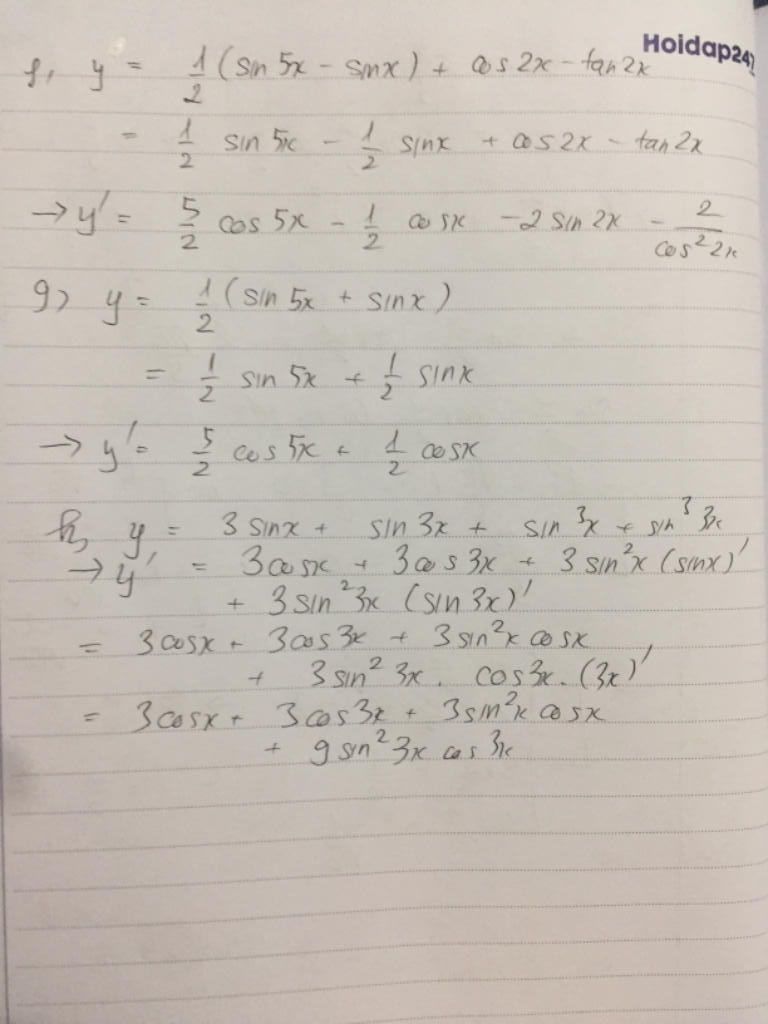 Hoidap247
f, y = 1/2 (sin 5x - sinx) + cos 2x - tan 2x
= 1/2 sin 5x - 1/2 sinx + cos 2x - tan 2x
→ y' = 5/2 cos 5x - 1/2 cosx - 2 sin 2x - 2/cos² 2x
g) y = 1/2 (sin 5x + sinx)
= 1/2 sin 5x + 1/2 sinx
→ y' = 5/2 cos 5x + 1/2 cosx
h, y = 3 sinx + sin 3x + sin³x + sin³ 3x
→ y' = 3cosx + 3cos 3x + 3 sin²x (sinx)'
+ 3 sin² 3x (sin 3x)'
= 3cosx + 3cos3x + 3 sin²x cosx
+ 3 sin² 3x . cos3x . (3x)'
= 3cosx + 3cos3x + 3sin²x cosx
+ 9 sin² 3x cos 3x